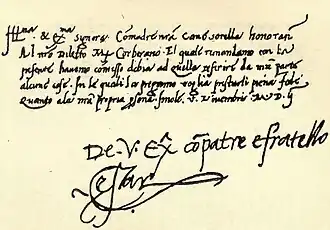 Ill.ma & Ex.ma Signora Comadre n.ra et sorella honoran.
Al n.ro Diletto Mr Corberano. El quale rimandamo con la
presente havemo commisso debia ad quella referire da n.ra parte
alcune cose. In le quali la pregamo voglia prestarli piena fede
quanto ala n.ra propria persona. Imole. V. Decembris. M.D.
De. V. Ex. co̅patre e fratello
Cesar